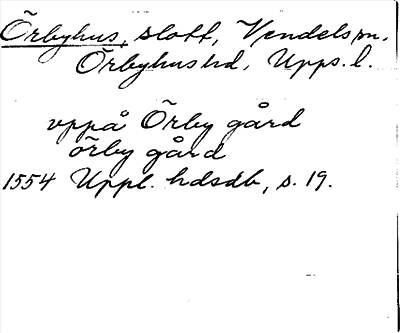 Örbyhus, slott, Vendels sn,
Örbyhus hd, Upps. l.
vppå Örby gård
örby gård
1554 Uppl. hdsdb, s. 19.